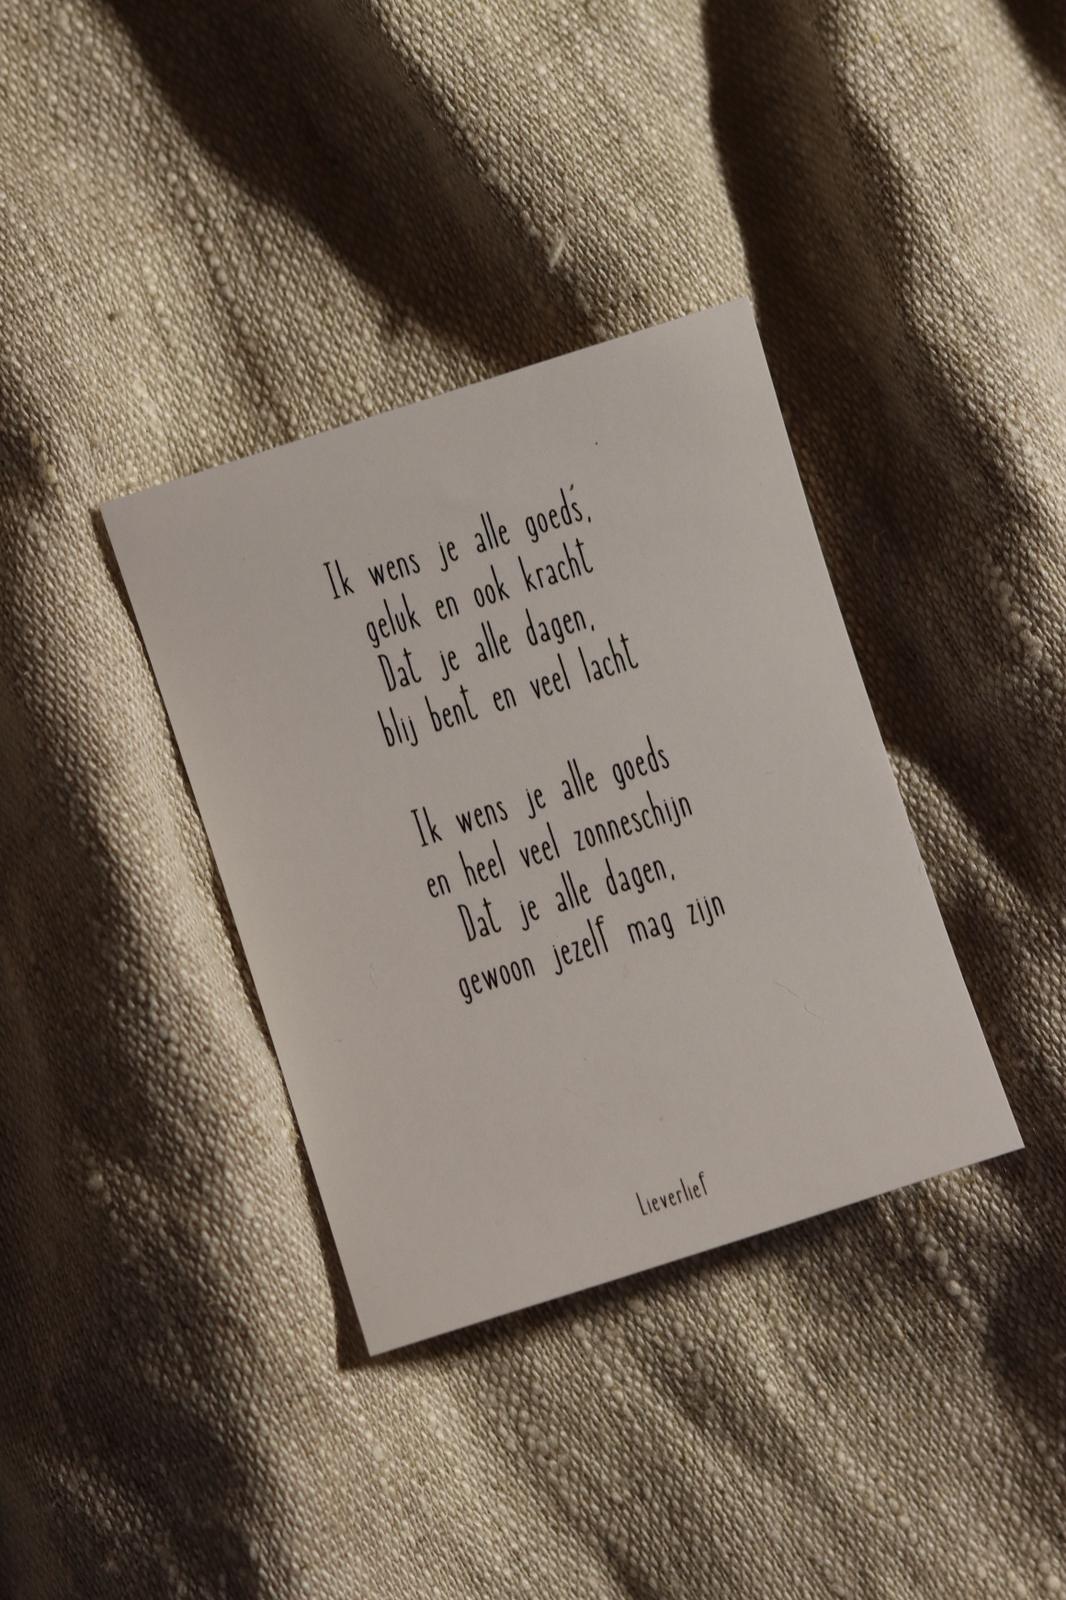 Ik wens je alle goed´s,
geluk en ook kracht
Dat je alle dagen,
blij bent en veel lacht
Ik wens je alle goeds
en heel veel zonneschijn
Dat je alle dagen,
gewoon jezelf mag zijn
Lieverlief